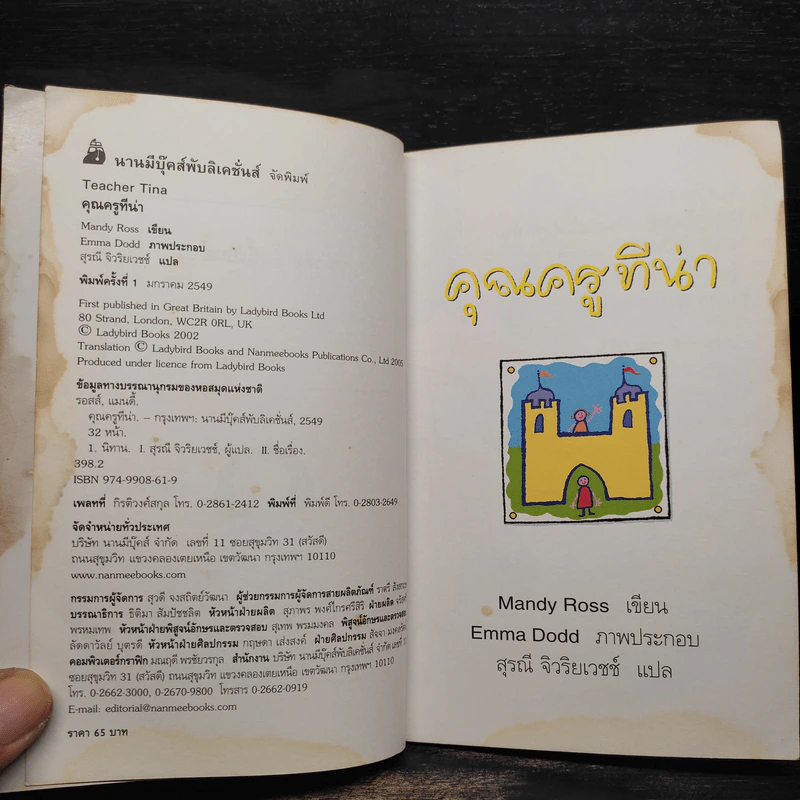 นานมีบุ๊คส์พับลิเคชั่นส์ จัดพิมพ์
Teacher Tina
คุณครูทีน่า
Mandy Ross เขียน
Emma Dodd ภาพประกอบ
สุรณี จิวริยเวชช์ แปล
พิมพ์ครั้งที่ 1 มกราคม 2549
First published in Great Britain by Ladybird Books Ltd
80 Strand, London, WC2R 0RL, UK
© Ladybird Books 2002
Translation © Ladybird Books and Nanmeebooks Publications Co., Ltd 2005
Produced under licence from Ladybird Books
ข้อมูลทางบรรณานุกรมของหอสมุดแห่งชาติ
รอสส์, แมนดี้.
คุณครูทีน่า. – กรุงเทพฯ: นานมีบุ๊คส์พับลิเคชั่นส์, 2549
32 หน้า.
1. นิทาน. I. สุรณี จิวริยเวชช์, ผู้แปล. II. ชื่อเรื่อง.
398.2
ISBN 974-9908-61-9
เพลทที่ กิรติวงศ์สกุล โทร. 0-2861-2412 พิมพ์ที่ พิมพ์ดี โทร. 0-2803-2649
จัดจำหน่ายทั่วประเทศ
บริษัท นานมีบุ๊คส์ จำกัด เลขที่ 11 ซอยสุขุมวิท 31 (สวัสดี)
ถนนสุขุมวิท แขวงคลองเตยเหนือ เขตวัฒนา กรุงเทพฯ 10110
www.nanmeebooks.com
กรรมการผู้จัดการ สุวดี จงสถิตย์วัฒนา ผู้ช่วยกรรมการผู้จัดการสายผลิตภัณฑ์ ราตรี
บรรณาธิการ ธิติมา สัมปัชชลิต หัวหน้าฝ่ายผลิต สุภาพร พงศ์ไกรศรีสิริ ฝ่ายผลิต
พรหมเทพ หัวหน้าฝ่ายพิสูจน์อักษรและตรวจสอบ สุเทพ พรมมงคล พิสูจน์อักษรและตรวจสอบ
ลัดดาวัลย์ บุตรดี หัวหน้าฝ่ายศิลปกรรม กฤษดา เส่งสงค์ ฝ่ายศิลปกรรม สัจจา
คอมพิวเตอร์กราฟิก มณฤดี พรชัยวรกุล สำนักงาน บริษัท นานมีบุ๊คส์พับลิเคชั่นส์ จำกัด เลขที่
ซอยสุขุมวิท 31 (สวัสดี) ถนนสุขุมวิท แขวงคลองเตยเหนือ เขตวัฒนา กรุงเทพฯ 10110
โทร. 0-2662-3000, 0-2670-9800 โทรสาร 0-2662-0919
E-mail: editorial@nanmeebooks.com
ราคา 65 บาท
คุณครูทีน่า
Mandy Ross เขียน
Emma Dodd ภาพประกอบ
สุรณี จิวริยเวชช์ แปล